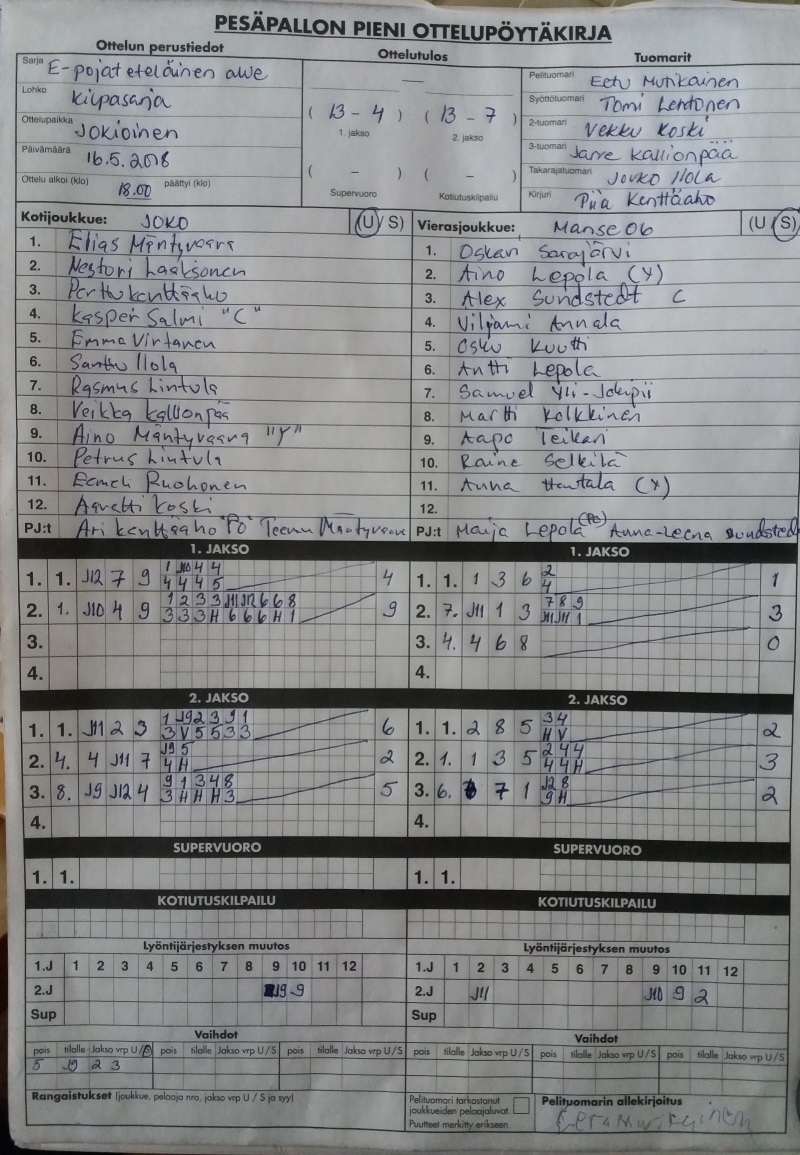 PESÄPALLON PIENI OTTELUPÖYTÄKIRJA
Ottelun perustiedot
Ottelutulos
Tuomarit
Sarja E-pojat eteläinen alue
Lohko Kilpasarja
Ottelupaikka Jokioinen
Päivämäärä 16.5.2018
Ottelu alkoi (klo) 18.00 päättyi (klo)
( 13 - 4 ) ( 13 - 7 )
1. jakso 2. jakso
( - ) ( - )
Supervuoro Kotiutuskilpailu
Pelituomari Eetu Mutikainen
Syöttötuomari Tomi Lehtonen
2-tuomari Vekku Koski
3-tuomari Jarre Kallionpää
Takarajatuomari Jouko Ilola
Kirjuri Piia Kenttäaho
Kotijoukkue: JOKO (U/S)
1. Elias Mäntyvaara
2. Nestori Laaksonen
3. Perttu Kenttäaho
4. Kasper Salmi "C"
5. Emma Virtanen
6. Santtu Ilola
7. Rasmus Lintula
8. Veikka Kallionpää
9. Aino Mäntyvaara "Y"
10. Petrus Lintula
11. Eemeli Ruohonen
12. Agretti Koski
PJ:t Ari Kenttäaho "PÖ" Teemu Mäntyvaara
Vierasjoukkue: Manse 06 (U/S)
1. Oskari Sarajärvi
2. Aino Lepola (Y)
3. Alex Sundstedt C
4. Viljami Annala
5. Osku Kuutti
6. Antti Lepola
7. Samuel Yli-Jokipii
8. Martti Kolkkinen
9. Aapo Teikari
10. Raine Selkilä
11. Anna Hautala (Y)
12.
PJ:t Maija Lepola (PÖ) Anna-Leena Sundstedt
1. JAKSO
1. 1. J12 7 9 1 J10 4 4 4
4 4 4 5
2. 1. J10 4 9 1 2 3 3 J11 J12 6 6 8 9
3 3 3 H 6 6 6 H 1
3.
4.
1. JAKSO
1. 1. 1 3 6 2 1
4
2. 7. J11 1 3 7 8 9 3
J11 J11 1
3. 4. 4 6 8 0
4.
2. JAKSO
1. 1. J11 2 3 1 J9 2 3 9 1 6
3 V 5 5 3 3
2. 4. 4 J11 7 J9 5 2
4 H
3. 8. J9 J12 4 9 1 3 4 8 5
3 H H H 3
4.
2. JAKSO
1. 1. 2 8 5 3 4 2
H V
2. 1. 1 3 5 2 4 4 3
4 4 H
3. 6. 7 1 J2 8 2
9 H
4.
SUPERVUORO
1. 1.
SUPERVUORO
1. 1.
KOTIUTUSKILPAILU
KOTIUTUSKILPAILU
Lyöntijärjestyksen muutos
1.J 1 2 3 4 5 6 7 8 9 10 11 12
2.J J9 9
Sup
Lyöntijärjestyksen muutos
1.J 1 2 3 4 5 6 7 8 9 10 11 12
2.J J11 J10 9 2
Sup
Vaihdot
pois tilalle Jakso vrp U/S pois tilalle Jakso vrp U/S pois tilalle Jakso vrp U/S
5 J9 2 3
Vaihdot
pois tilalle Jakso vrp U/S pois tilalle Jakso vrp U/S pois tilalle Jakso vrp U/S
Rangaistukset (joukkue, pelaaja nro, jakso vrp U / S ja syy)
Pelituomari tarkastanut
joukkueiden pelaajaluvat.
Puutteet merkitty erikseen.
Pelituomarin allekirjoitus